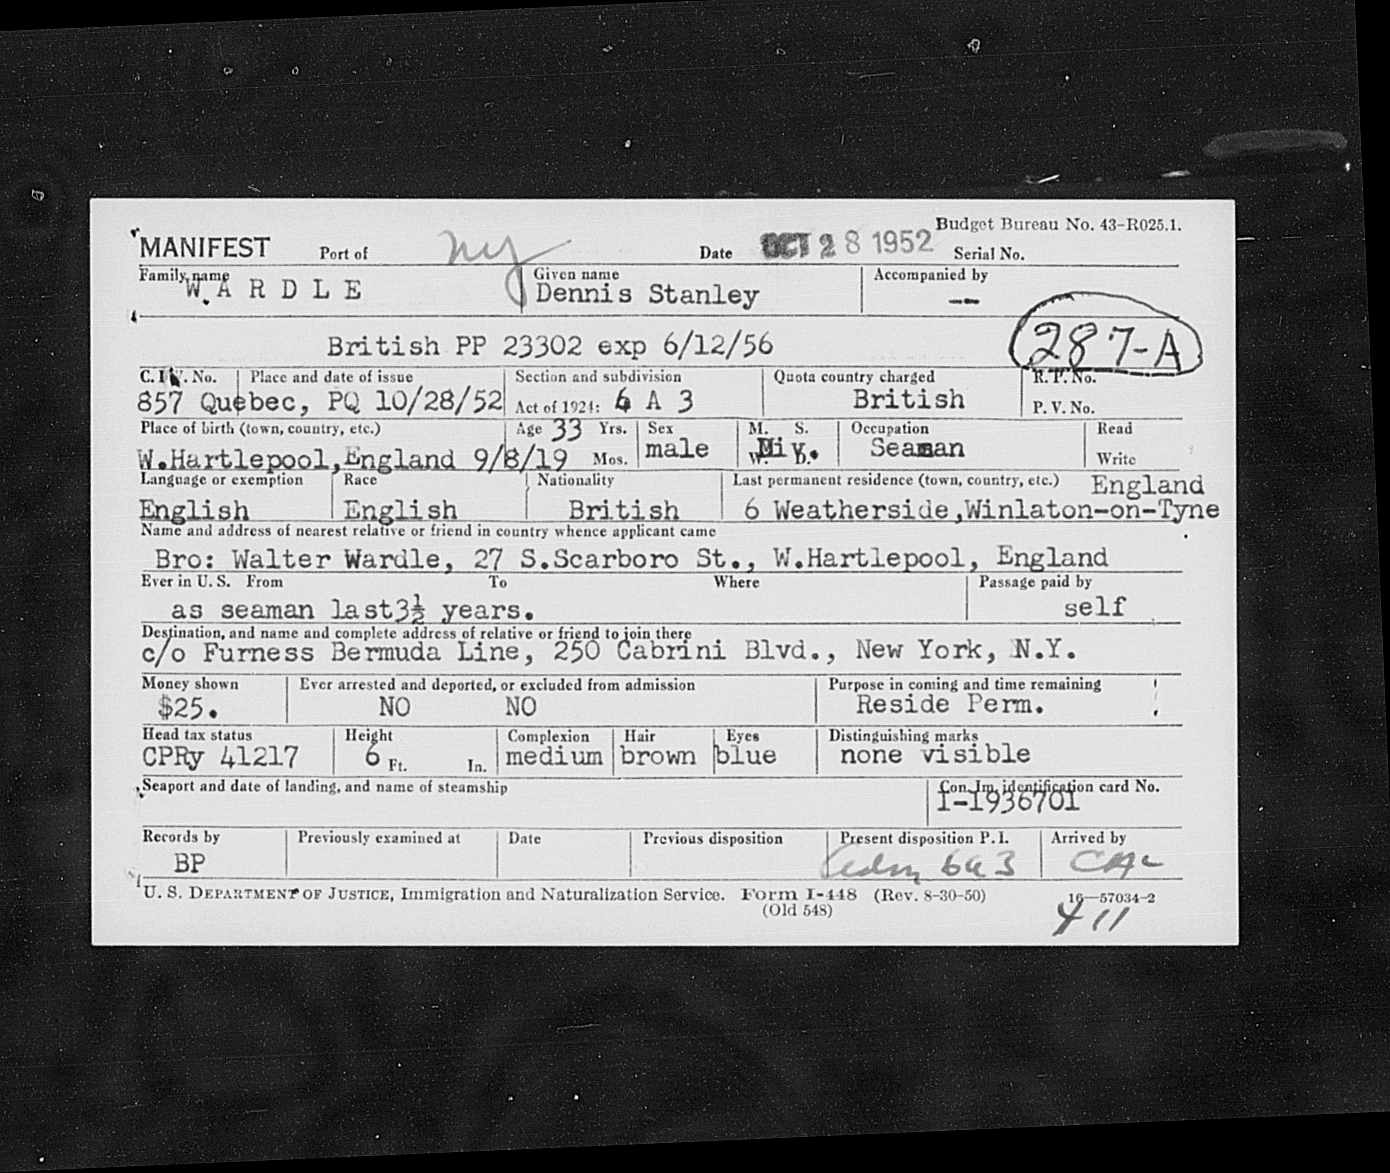 Budget Bureau No. 43-R025.1.
MANIFEST Port of NY Date OCT 28 1952 Serial No.
Family name Given name Accompanied by
WARDLE Dennis Stanley --
British PP 23302 exp 6/12/56 287-A
C.I.V. No. Place and date of issue Section and subdivision Quota country charged R.P. No.
857 Quebec, PQ 10/28/52 Act of 1924: 6 A 3 British P. V. No.
Place of birth (town, country, etc.) Age 33 Yrs. Sex M. S. Occupation Read
W.Hartlepool,England 9/8/19 Mos. male W. D. Div. Seaman Write
Language or exemption Race Nationality Last permanent residence (town, country, etc.) England
English English British 6 Weatherside,Winlaton-on-Tyne
Name and address of nearest relative or friend in country whence applicant came
Bro: Walter Wardle, 27 S.Scarboro St., W.Hartlepool, England
Ever in U. S. From To Where Passage paid by
as seaman last3½ years. self
Destination, and name and complete address of relative or friend to join there
c/o Furness Bermuda Line, 250 Cabrini Blvd., New York, N.Y.
Money shown Ever arrested and deported, or excluded from admission Purpose in coming and time remaining
$25. NO NO Reside Perm.
Head tax status Height Complexion Hair Eyes Distinguishing marks
CPRy 41217 6 Ft. In. medium brown blue none visible
Seaport and date of landing, and name of steamship Con. Im. identification card No.
I-1936701
Records by Previously examined at Date Previous disposition Present disposition P. I. Arrived by
BP 6a3
U. S. DEPARTMENT OF JUSTICE, Immigration and Naturalization Service. Form I-448 (Rev. 8-30-50) 16—57034-2
(Old 548) 411